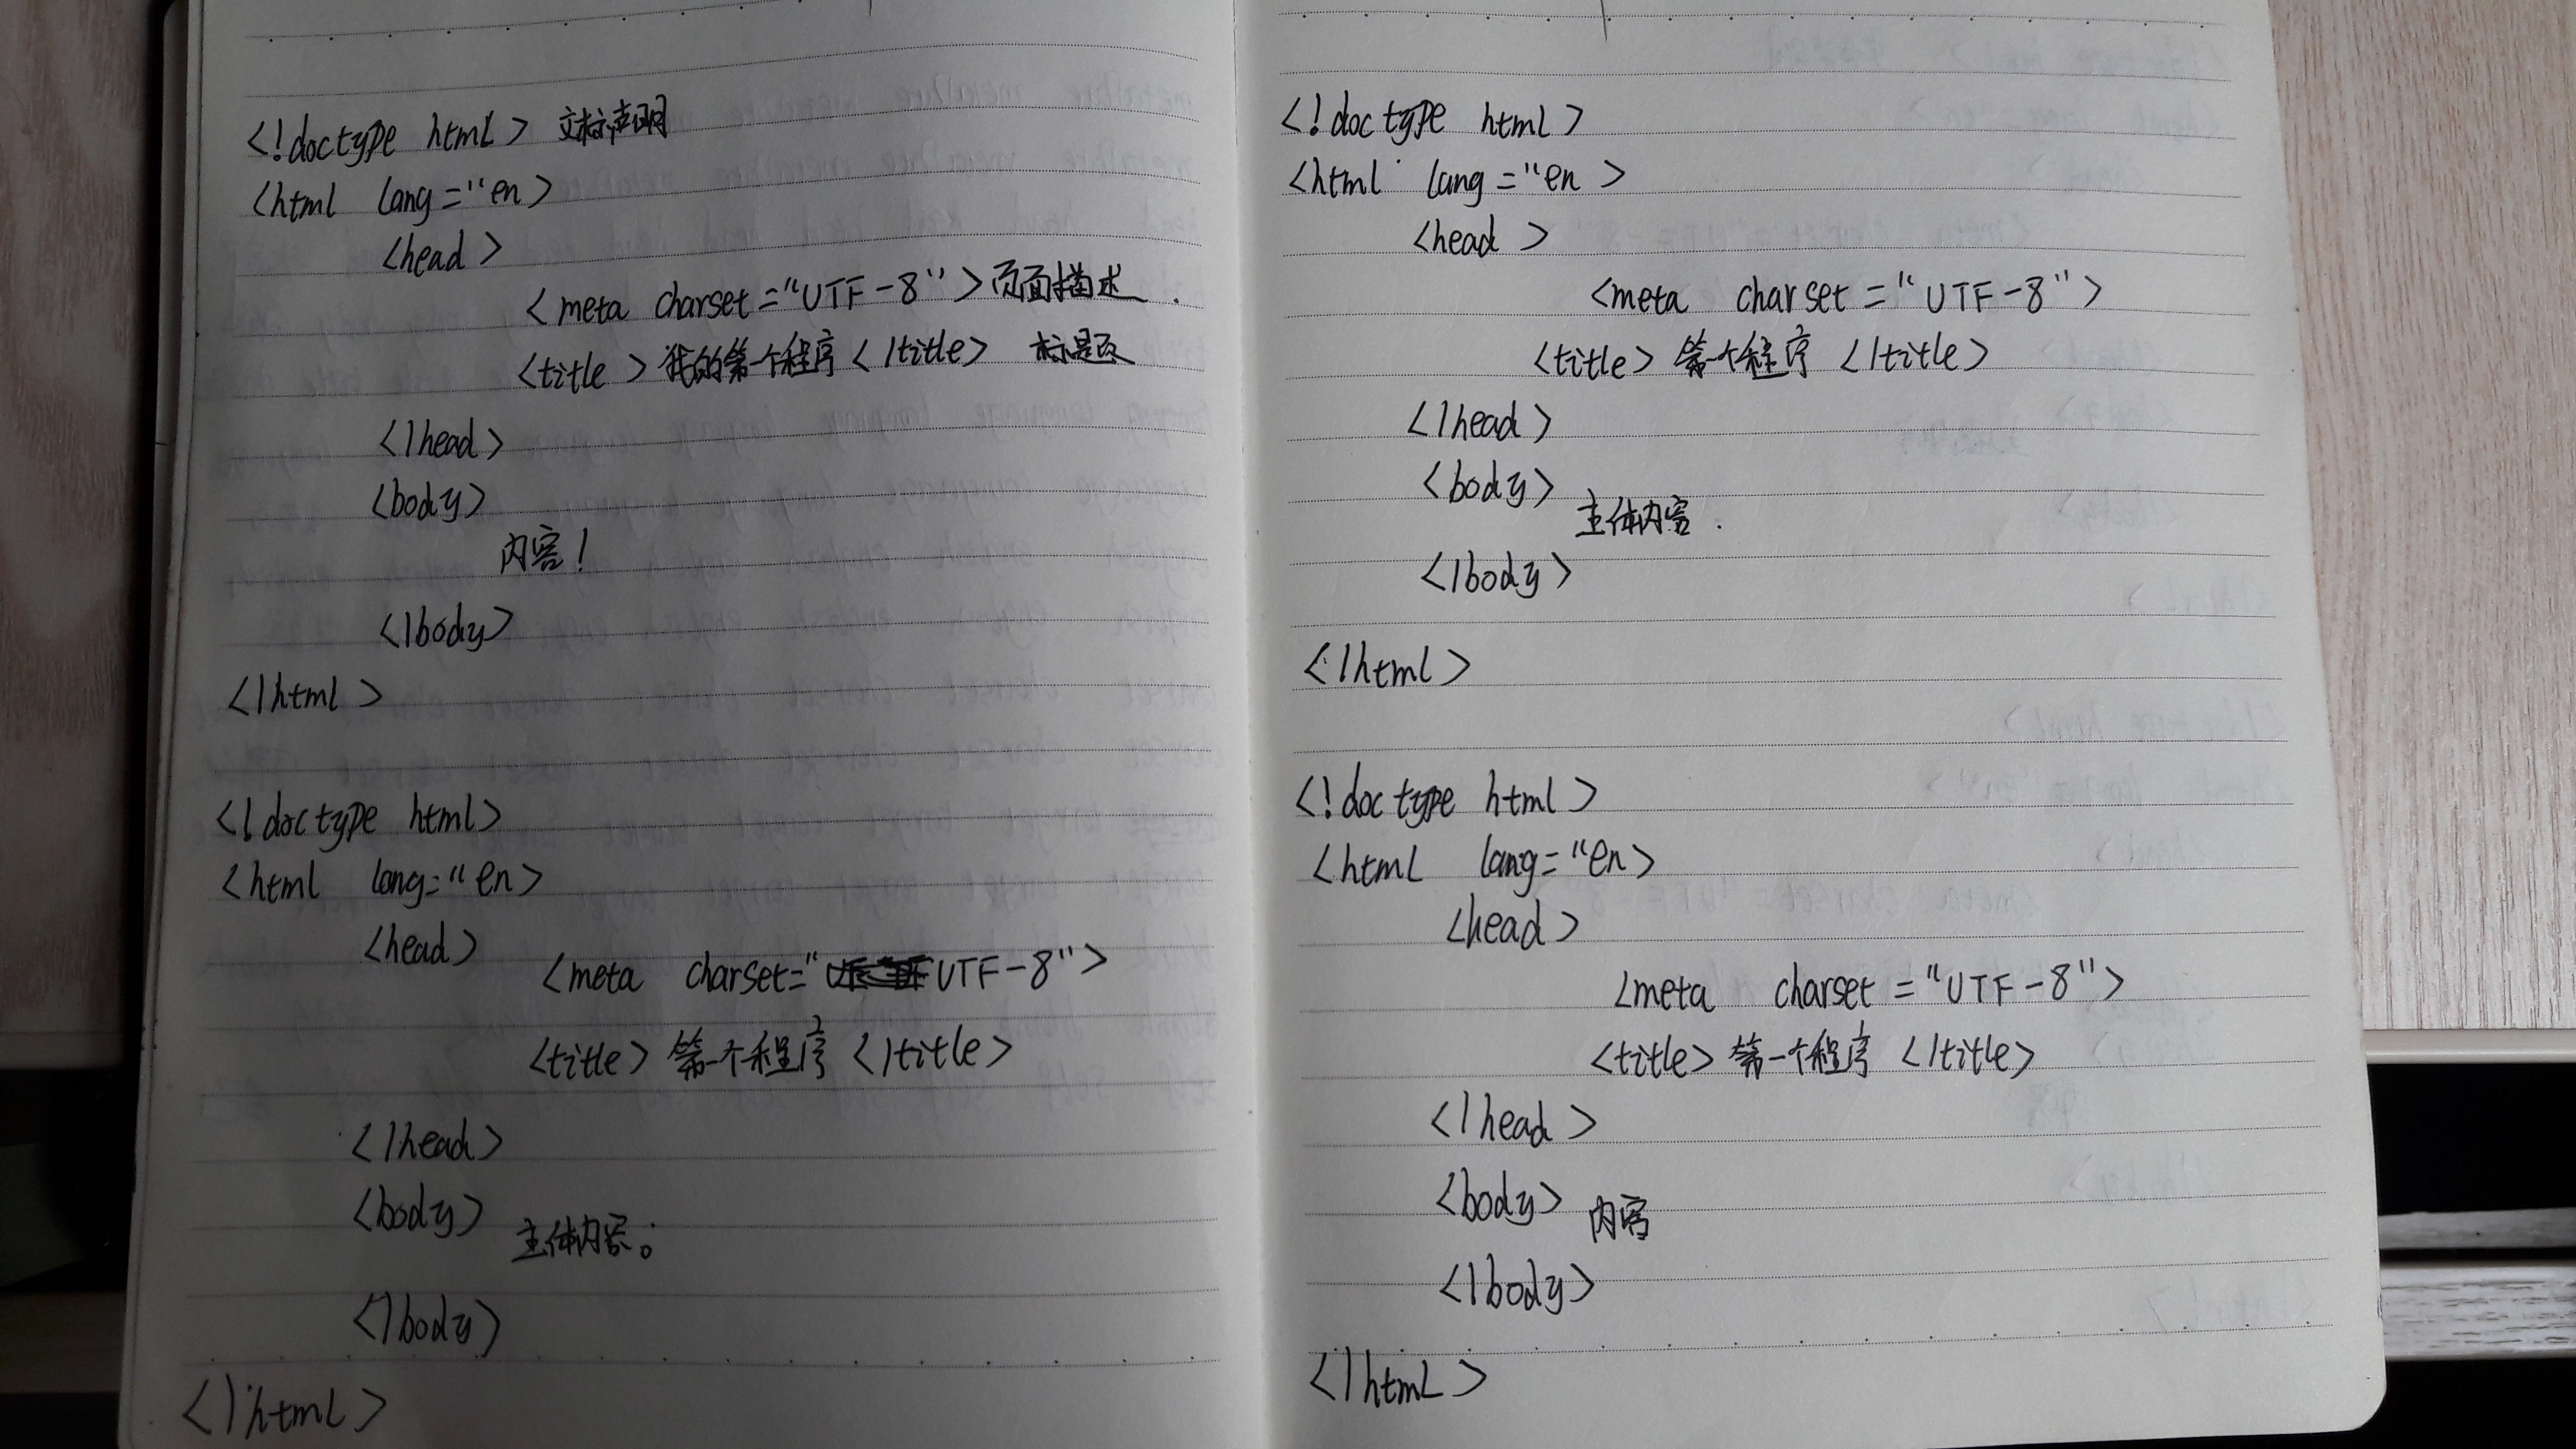 <!doctype html> 文档声明
<html lang="en>
<head>
<meta charset="UTF-8">页面描述.
<title>我的第一个程序</title> 标题
</head>
<body>
内容!
</body>
</html>
<!doctype html>
<html lang="en>
<head>
<meta charset="UTF-8">
<title>第一个程序</title>
</head>
<body>
主体内容。
</body>
</html>
<!doctype html>
<html lang="en>
<head>
<meta charset="UTF-8">
<title>第一个程序</title>
</head>
<body>
主体内容.
</body>
</html>
<!doctype html>
<html lang="en>
<head>
<meta charset="UTF-8">
<title>第一个程序</title>
</head>
<body>
内容
</body>
</html>